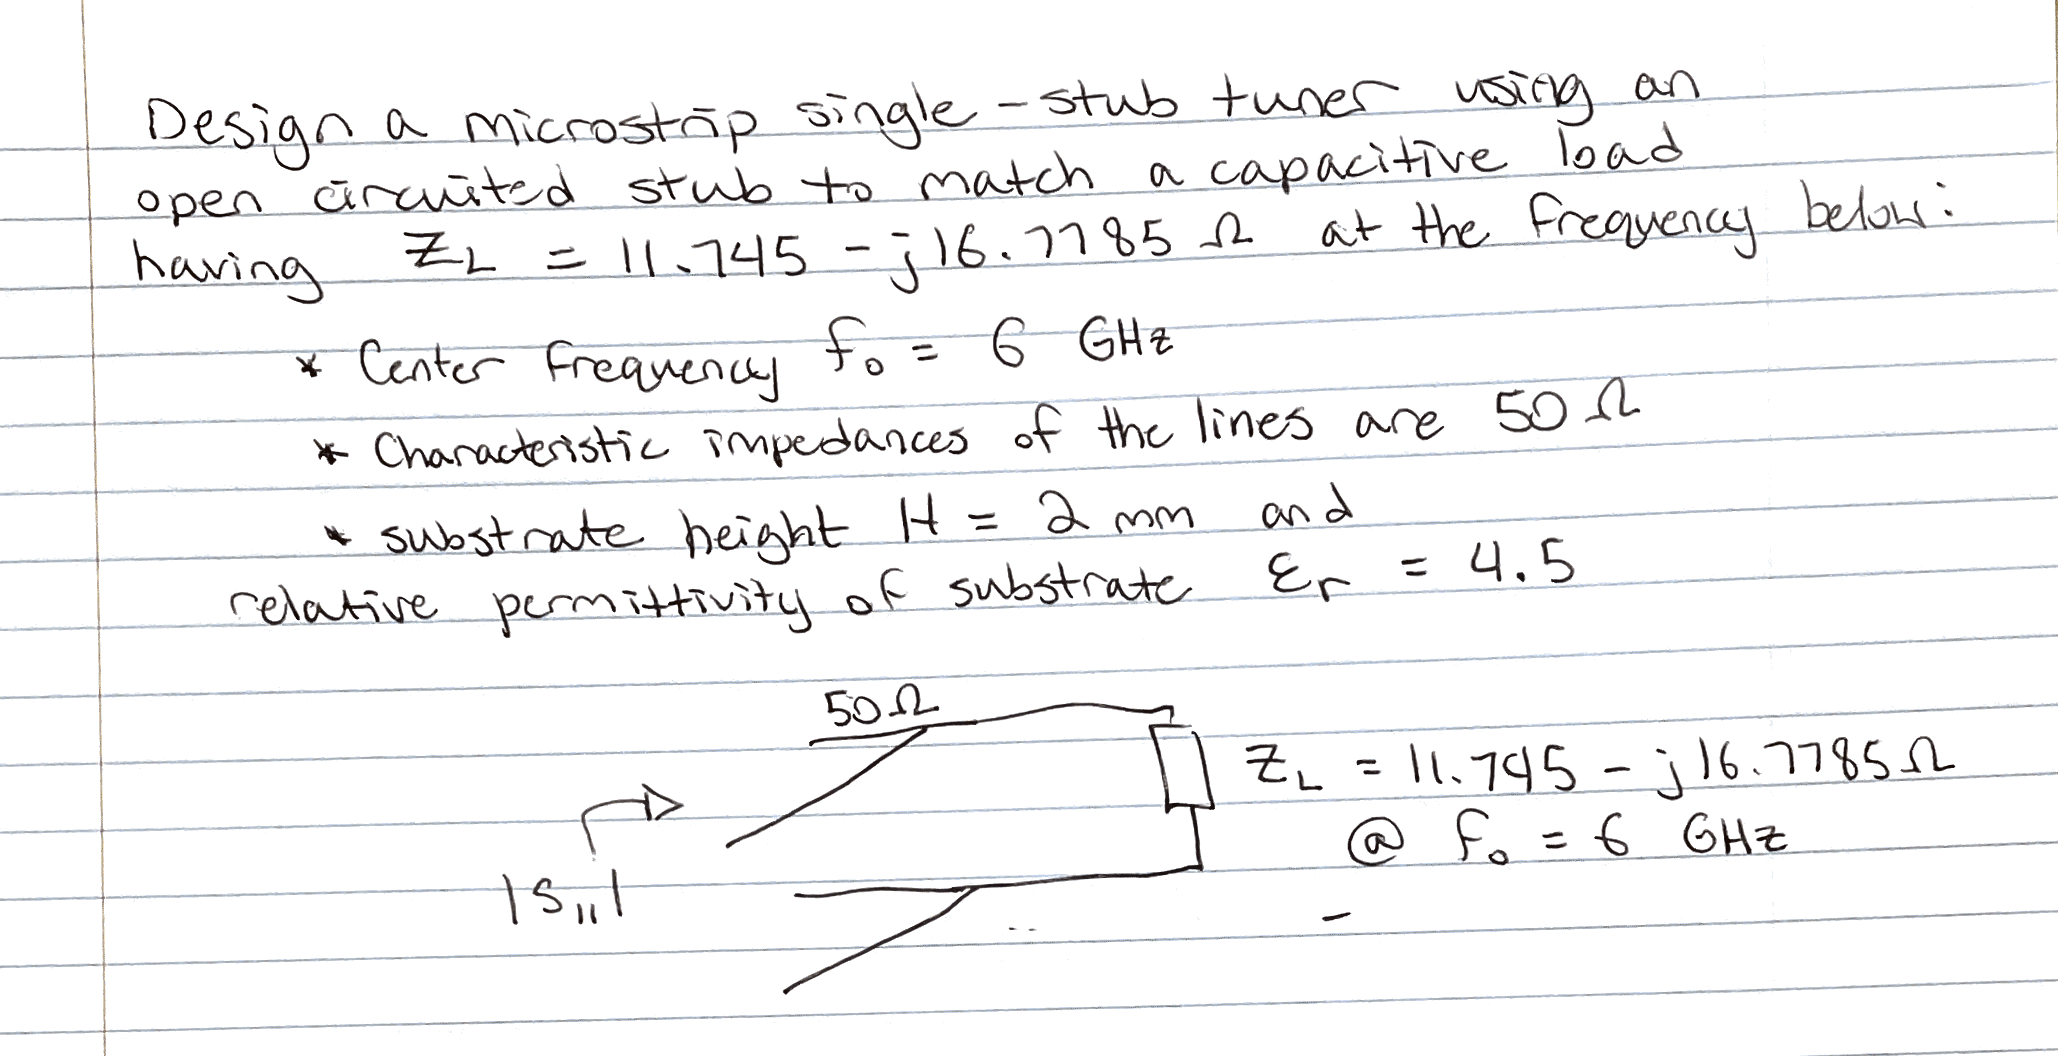 Design a microstrip single-stub tuner using an
open circuited stub to match a capacitive load
having ZL = 11.745 - j16.7785 Ω at the frequency below:
* Center frequency fo = 6 GHz
* Characteristic impedances of the lines are 50 Ω
* substrate height H = 2 mm and
relative permittivity of substrate εr = 4.5
50Ω
ZL = 11.745 - j16.7785Ω
@ fo = 6 GHz
|S11|